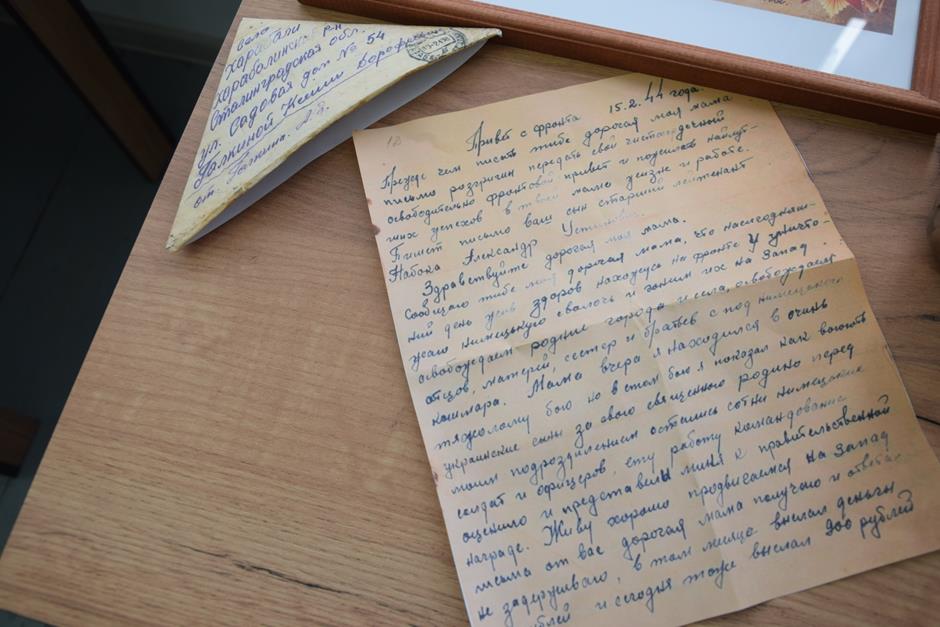 село
Харабали
Харабалинский р-н
Сталинградская обл.
ул. Садовая дом № 54
Галкиной
от. Галкина. А.
Привет с фронта 15.2.44 года.
Прежде чем писать тибе дорогая моя мама
письмо разришии передать свой чистосердечной
освободительно фронтовой привет и пожелать найлут-
ших успехов в твоей мама жизне и работе.
Пишет письмо ваш сын старший лейтенант
Набока Александр Устинович.
Здравствуйте дорогая моя мама.
Сообщаю тибе моя дорогая мама, что насигодняш-
ний день жив здоров нахожусь на фронте Уничто-
жаю нимецькую сволочь и гоним их на Запад
освобождаем родние города и села, освобождаем
отцов, матерей, сестер и братьев с под нимецького
кошмара. Мама вчера я находился в очинь
тяжолому бою но в етом бою я показал как воюють
украинские сыны за свою священною родино перед
моим подразделением остались сотни нимецьких
солдат и офицеров, ету работу командование
оценило и представелы миня к правительственной
награде. Живу хорошо продвигаемся на Запад
письма от вас дорогая мама получаю и ответа
не задерушваю, в том мисяце выслал деньгы
рублей и сегодня тоже выслал 900 рублей